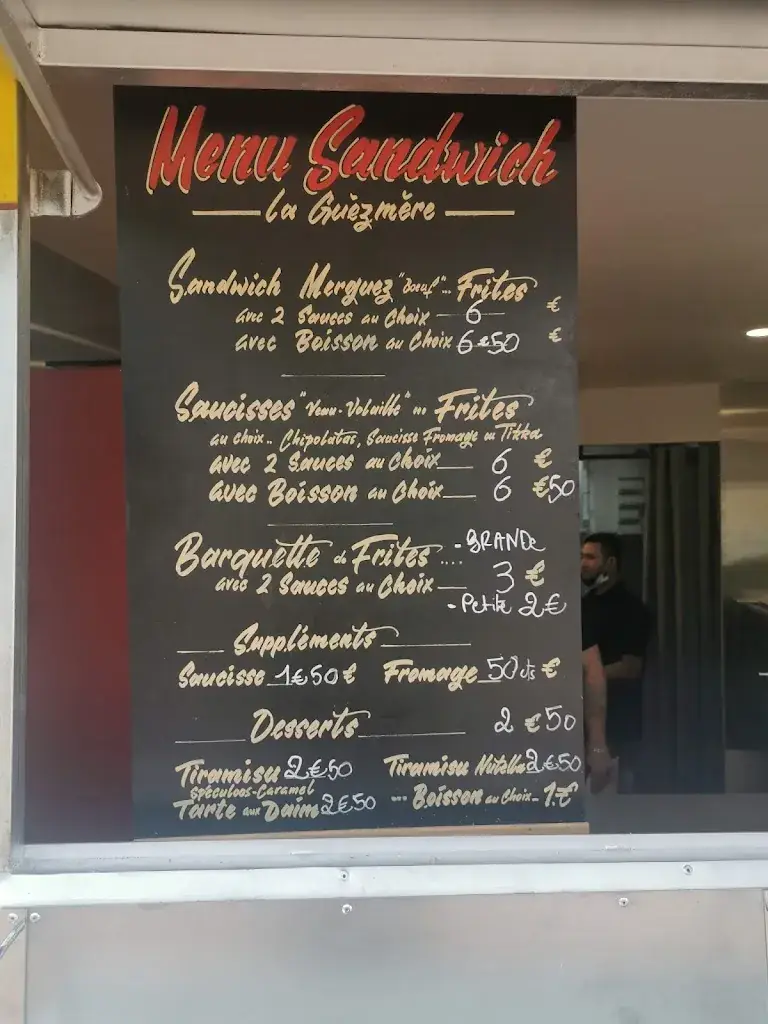 Menu Sandwich
La Guèzmère
Sandwich Merguez "Boeuf"... Frites
avec 2 Sauces au Choix 6 €
avec Boisson au Choix 6€50 €
Saucisses "Veau-Volaille" ... Frites
au choix.. Chipolatas, Saucisse Fromage ou Tikka
avec 2 Sauces au Choix 6 €
avec Boisson au Choix 6 €50
Barquette de Frites .... - GRANDE
avec 2 Sauces au Choix 3 €
- Petite 2€
Suppléments
Saucisse 1€50 € Fromage 50 cts €
Desserts 2 €50
Tiramisu 2€50 Tiramisu Nutella 2€50
Spéculoos-Caramel
Tarte aux Daim 2€50 ... Boisson au Choix - 1.€